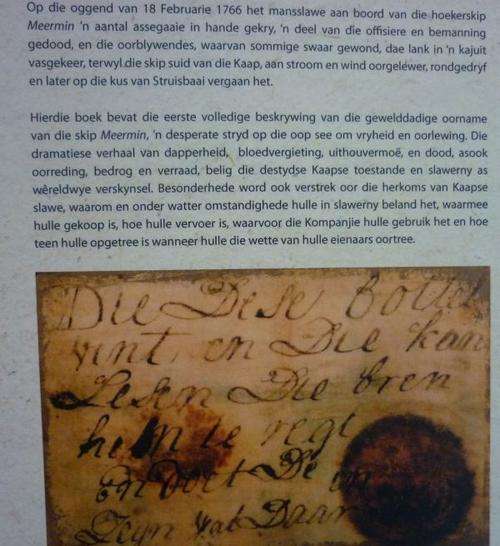 Op die oggend van 18 Februarie 1766 het mansslawe aan boord van die hoekerskip
Meermin 'n aantal assegaaie in hande gekry, 'n deel van die offisiere en bemanning
gedood, en die oorblywendes, waarvan sommige swaar gewond, dae lank in 'n kajuit
vasgekeer, terwyl die skip suid van die Kaap, aan stroom en wind oorgeléwer, rondgedryf
en later op die kus van Struisbaai vergaan het.
Hierdie boek bevat die eerste volledige beskrywing van die gewelddadige oorname
van die skip Meermin, 'n desperate stryd op die oop see om vryheid en oorlewing. Die
dramatiese verhaal van dapperheid, bloedvergieting, uithouvermoë, en dood, asook
oorreding, bedrog en verraad, belig die destydse Kaapse toestande en slawerny as
wêreldwye verskynsel. Besonderhede word ook verstrek oor die herkoms van Kaapse
slawe, waarom en onder watter omstandighede hulle in slawerny beland het, waarmee
hulle gekoop is, hoe hulle vervoer is, waarvoor die Kompanjie hulle gebruik het en hoe
teen hulle opgetree is wanneer hulle die wette van hulle eienaars oortree.
Die Dese bottel
vint en Die kan
Lesen Die bren
hem te regt
En Doet De
Zeyn wat Daar